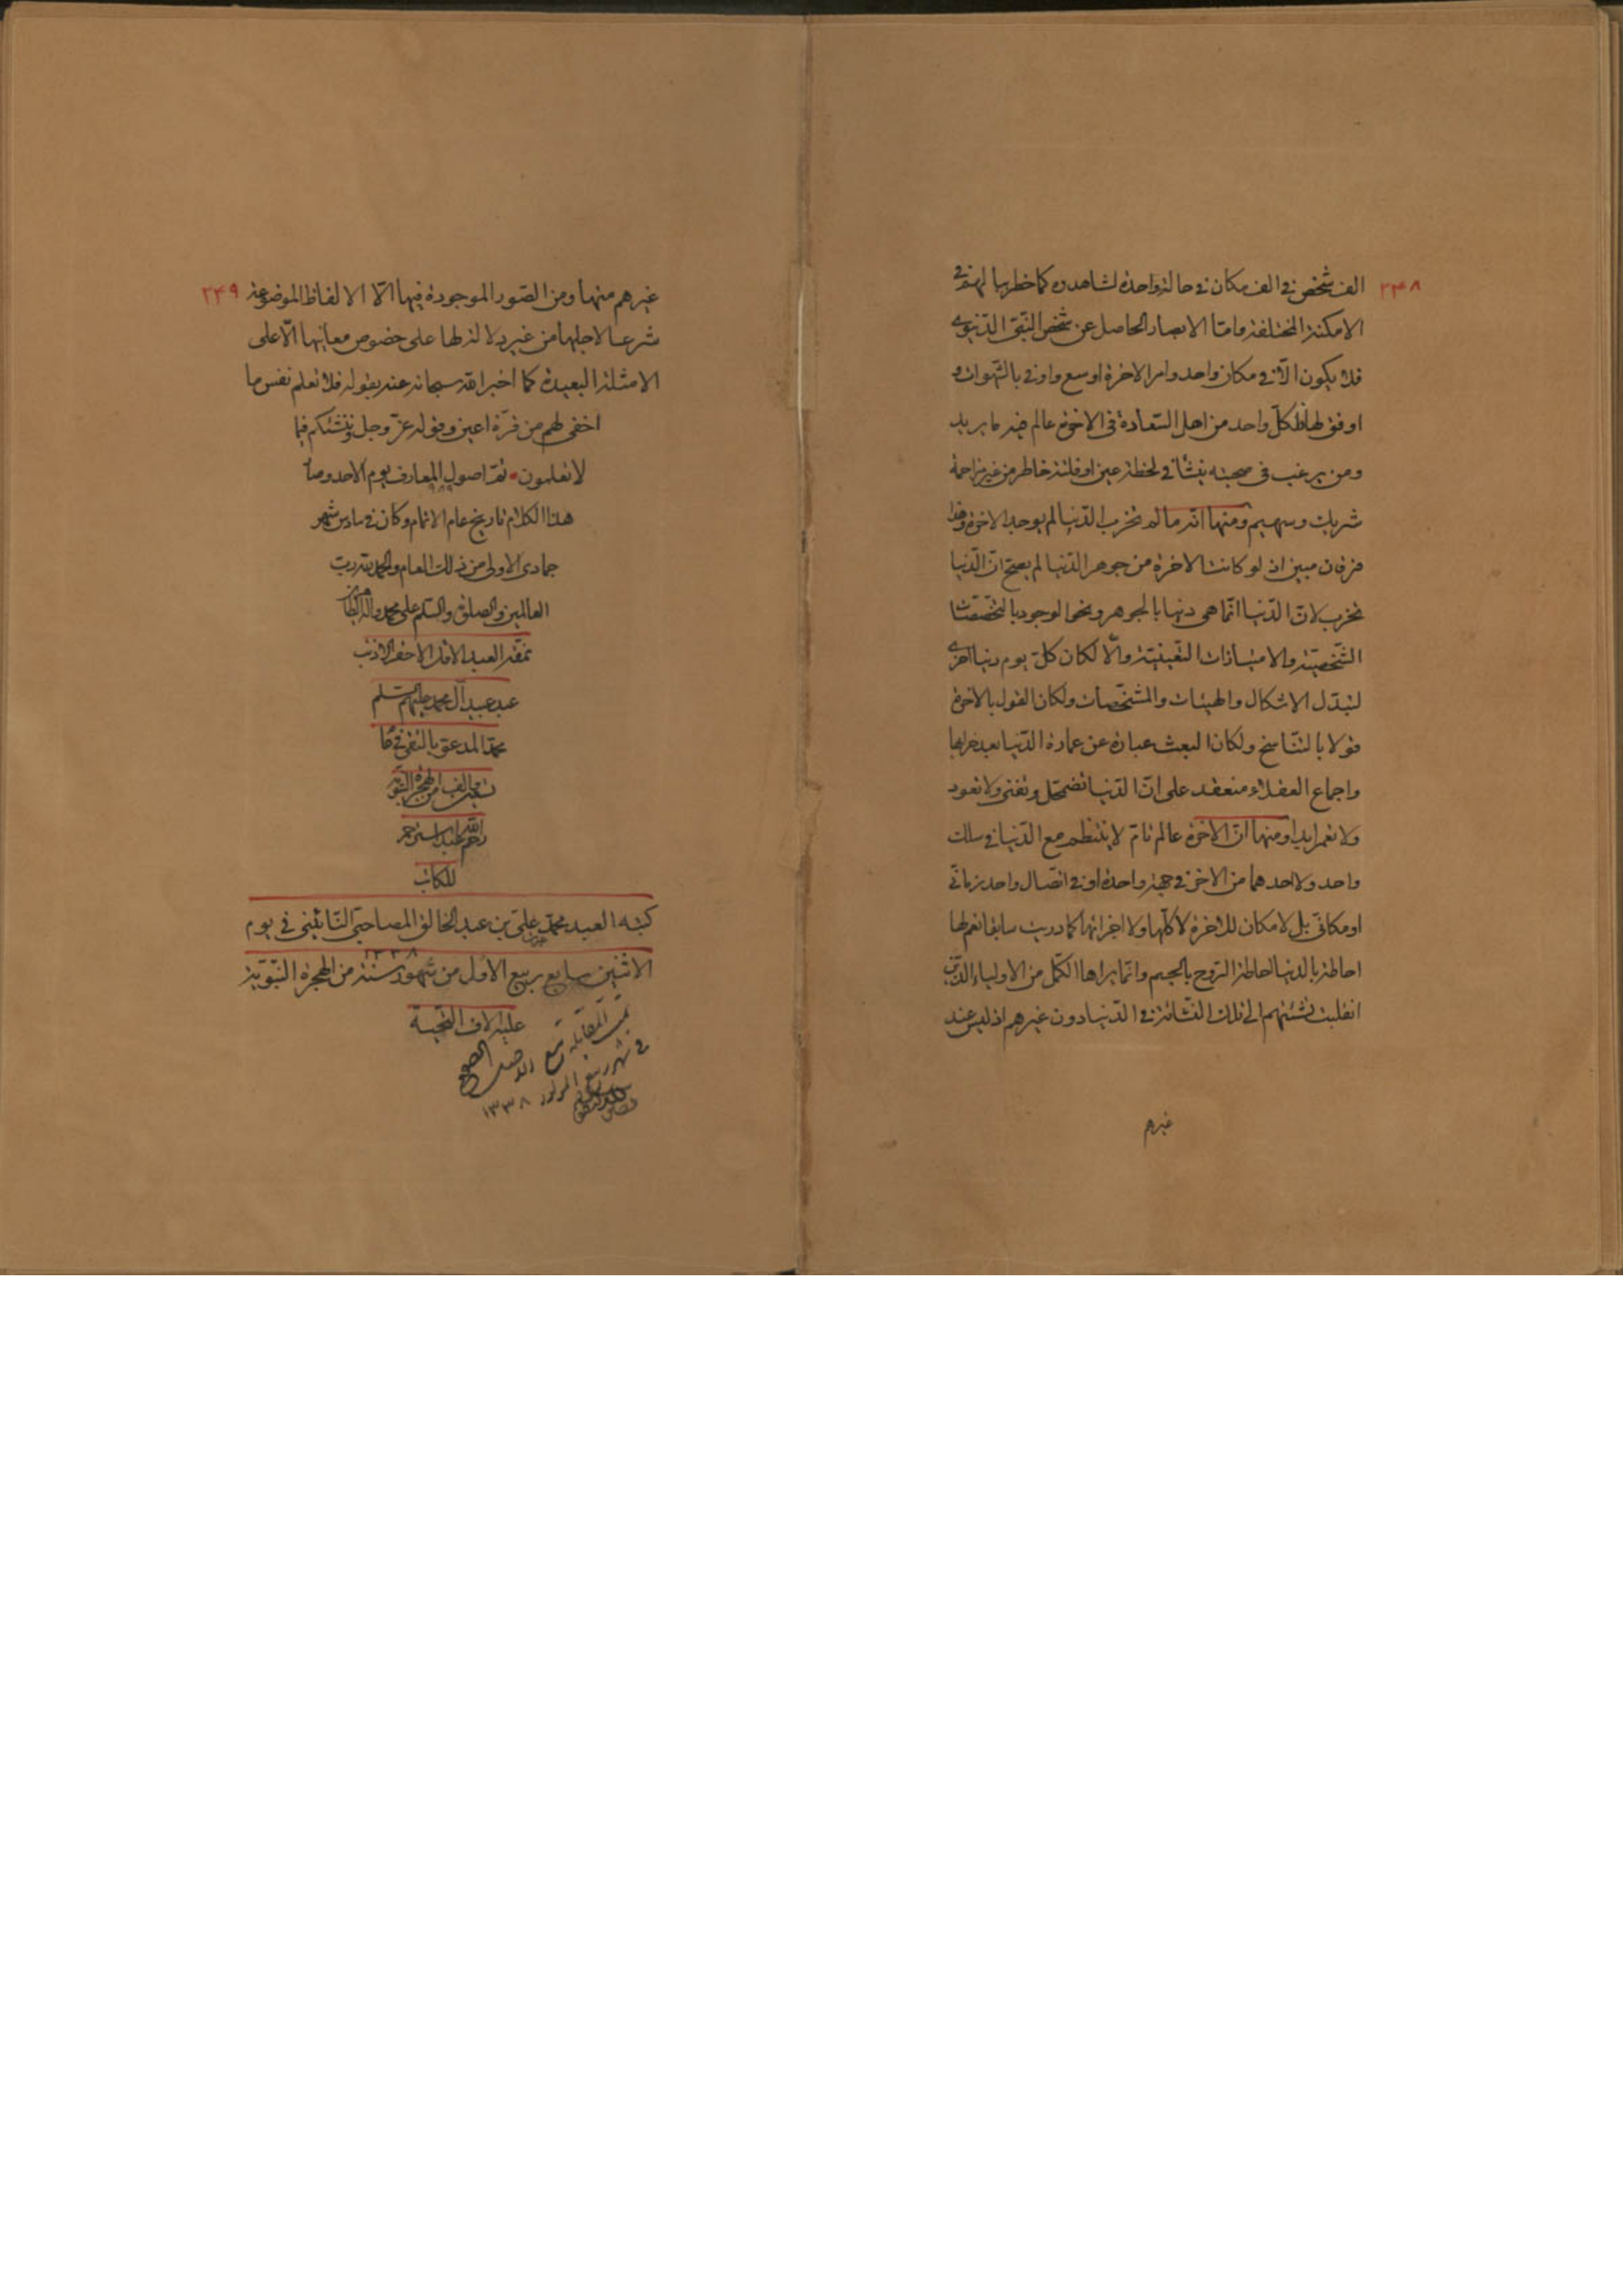 ٢٤٨
الف شخص فی الف مکان فی حالة واحدة لشاهدوه کما خطر ببالهم فی
الامکنة المختلفة وامّا الابصار الحاصل عن شخص النبیّ الدّنیوی
فلا یکون الّا فی مکان واحد وامر الاخرة اوسع واوفی بالشّهوات و
اوفق لها فلکلّ واحد من اهل السّعادة فی الاخرة عالم فیه ما یرید
ومن یرغب فی صحبته ینشأ فی لحظة عین او فلتة خاطر من غیر مزاحمة
شریک وسهیم ومنها انّه ما لم تخرب الدّنیا لم یوجد الاخرة وهذا
فرقان مبین اذ لو کانت الاخرة من جوهر الدّنیا لم یصحّ انّ الدّنیا
تخرب لانّ الدّنیا انّما هی دنیا بالجوهر ونحو الوجود لا بالتّشخّصات
الشّخصیّة والامتیازات التّعینیّة والّا لکان کلّ یوم دنیا اخری
لتبدّل الاشکال والهیئات والمشخّصات ولکان القول بالاخرة
قولا بالتّناسخ ولکان البعث عبارة عن عمارة الدّنیا بعد خرابها
واجماع العقلاء منعقد علی انّ الدّنیا تضمحلّ وتفنی ولا تعود
ولا تعمر ابدا ومنها انّ الاخرة عالم تامّ لا ینتظم مع الدّنیا فی سلک
واحد ولا احدهما من الاخر فی جهة واحدة او فی اتّصال واحد زمانی
او مکانیّ بل لا مکان للاخرة لا کلّها ولا اجزائها کما دریت سابقا نعم لها
احاطة بالدنیا احاطة الرّوح بالجسم وانّما یراها الکمّل من الاولیاء الذین
انقلبت نشئتهم الی تلک النّشائة فی الدّنیا دون غیرهم اذ لیس عند
غیرهم
٢٤٩
غیرهم منها ومن الصّور الموجودة فیها الّا الالفاظ الموضوعة
شرعا لاجلها من غیر دلالة لها علی خصوص معانیها الّا علی
الامثلة البعیدة کما اخبر الله سبحانه عنه بقوله فلا تعلم نفس ما
اخفی لهم من قرّة اعین وقوله عزّ وجل وننشئکم فیما
لا تعلمون تمّ اصول المعارف یوم الاحد وصار
هذا الکلام تاریخ عام الاتمام وکان فی سادس شهر
جمادی الاولی من ذلک العام والحمد لله ربّ
العالمین والصلوة والسّلم علی محمد واله الطّاهرین
نمّقه العبد الاقلّ الاحقر الاذنب
عبد عبید آل محمد علیهم السّلم
محمّد المدعوّ بالتّقی فی
الف من الهجرة النّبویّة
رحم الله عبدا استرحم
للکاتب
کتبه العبد محمّد علی بن عبد الخالق المصاحبی النّائینی فی یوم
الاثنین سابع ربیع الاوّل من شهور سنة ١٣٣٨ من الهجرة النّبویّة
علیه الاف التّحیّة
تمّت المقابلة مع
فی شهر ربیع المولود ١٣٣٨